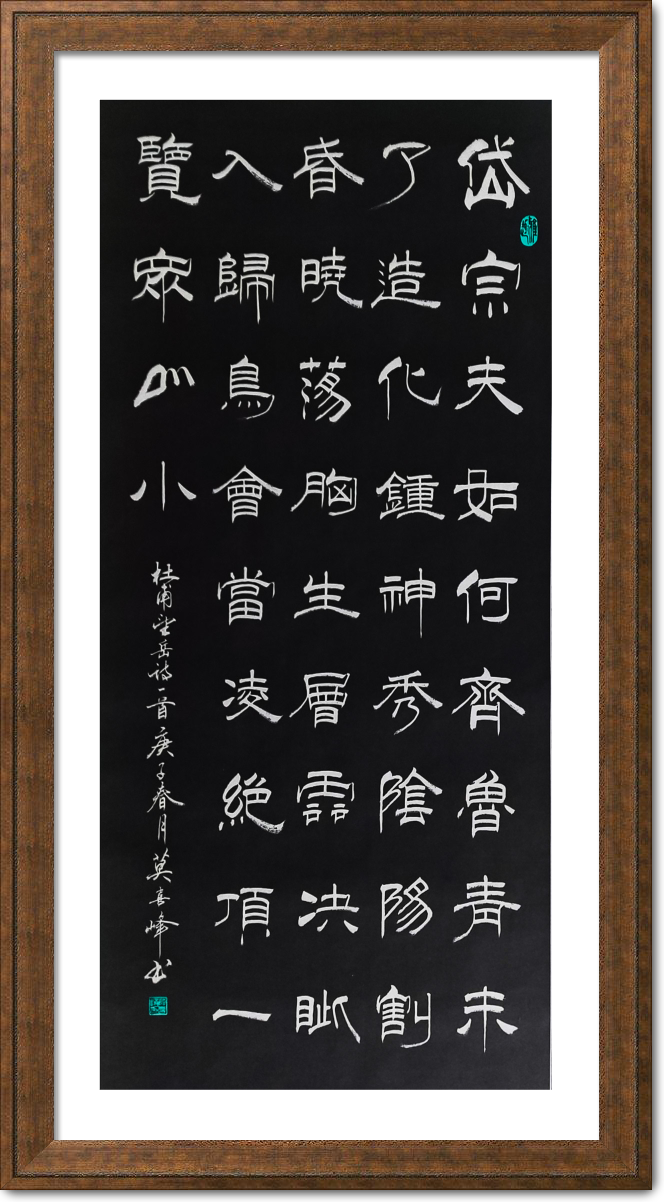 岱宗夫如何齊魯青未
了造化鍾神秀陰陽割
昏曉蕩胸生層雲决眦
入歸鳥會當凌絕頂一
覽眾山小
杜甫望岳诗一首庚子春月莫喜峰书